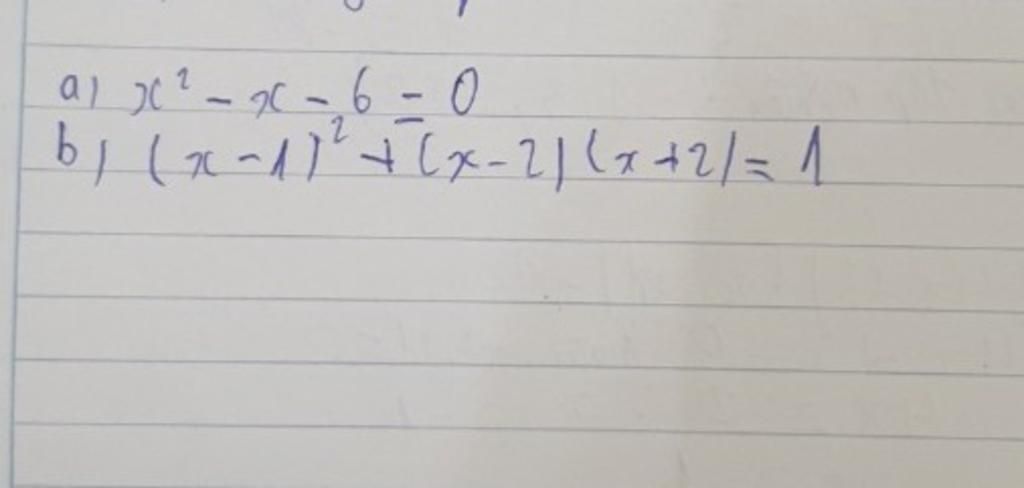 a) x² - x - 6 = 0
b) (x - 1)² + (x - 2) (x + 2) = 1